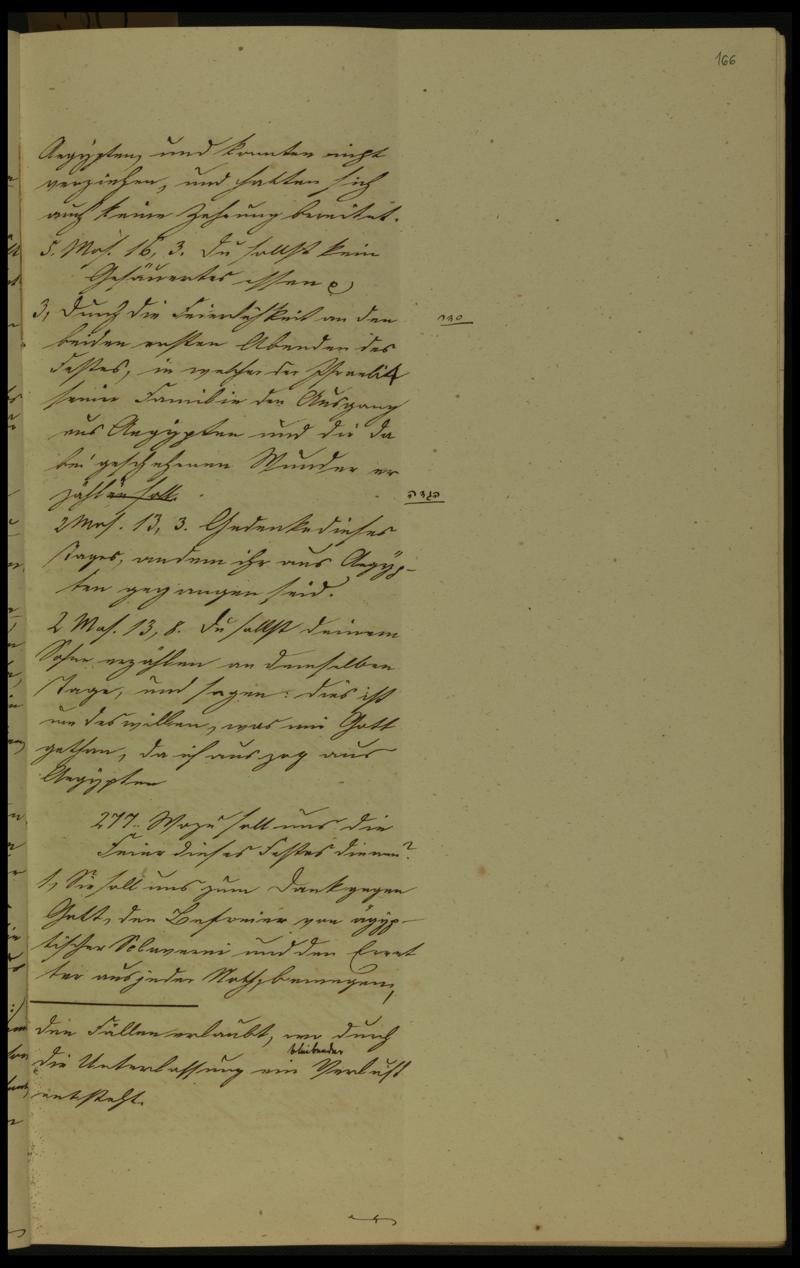 166
Aegypten, und konnten nicht
verziehen, und hatten sich
auch keine Zehrung bereitet.
5. Mos. 16, 3. Du sollst kein
Gesäuertes essen
3, Durch die Feierlichkeit an den
סדר
beiden ersten Abenden des
Festes, in welcher der Israelit
seiner Familie den Ausgang
aus Aegypten und die da
bei geschehenen Wunder er
zählen soll.
הגדה
2 Mos. 13, 3. Gedenke dieses
Tages, an dem ihr aus Aegyp-
ten gegangen seid.
2 Mos. 13, 8. Du sollst deinem
Sohne erzählen an demselben
Tage, und sagen: dies ist
um deswillen, was mir Gott
gethan, da ich auszog aus
Aegypten
277. Wozu soll uns die
Feier dieses Festes dienen?
1, Sie soll uns zum Dank gegen
Gott, den Befreier von ägyp-
tischer Sclaverei und den Erret
ter aus jeder Noth, bewegen,
den Fällen erlaubt, wo durch
bleibender
die Unterlassung ein Verlust
entsteht.